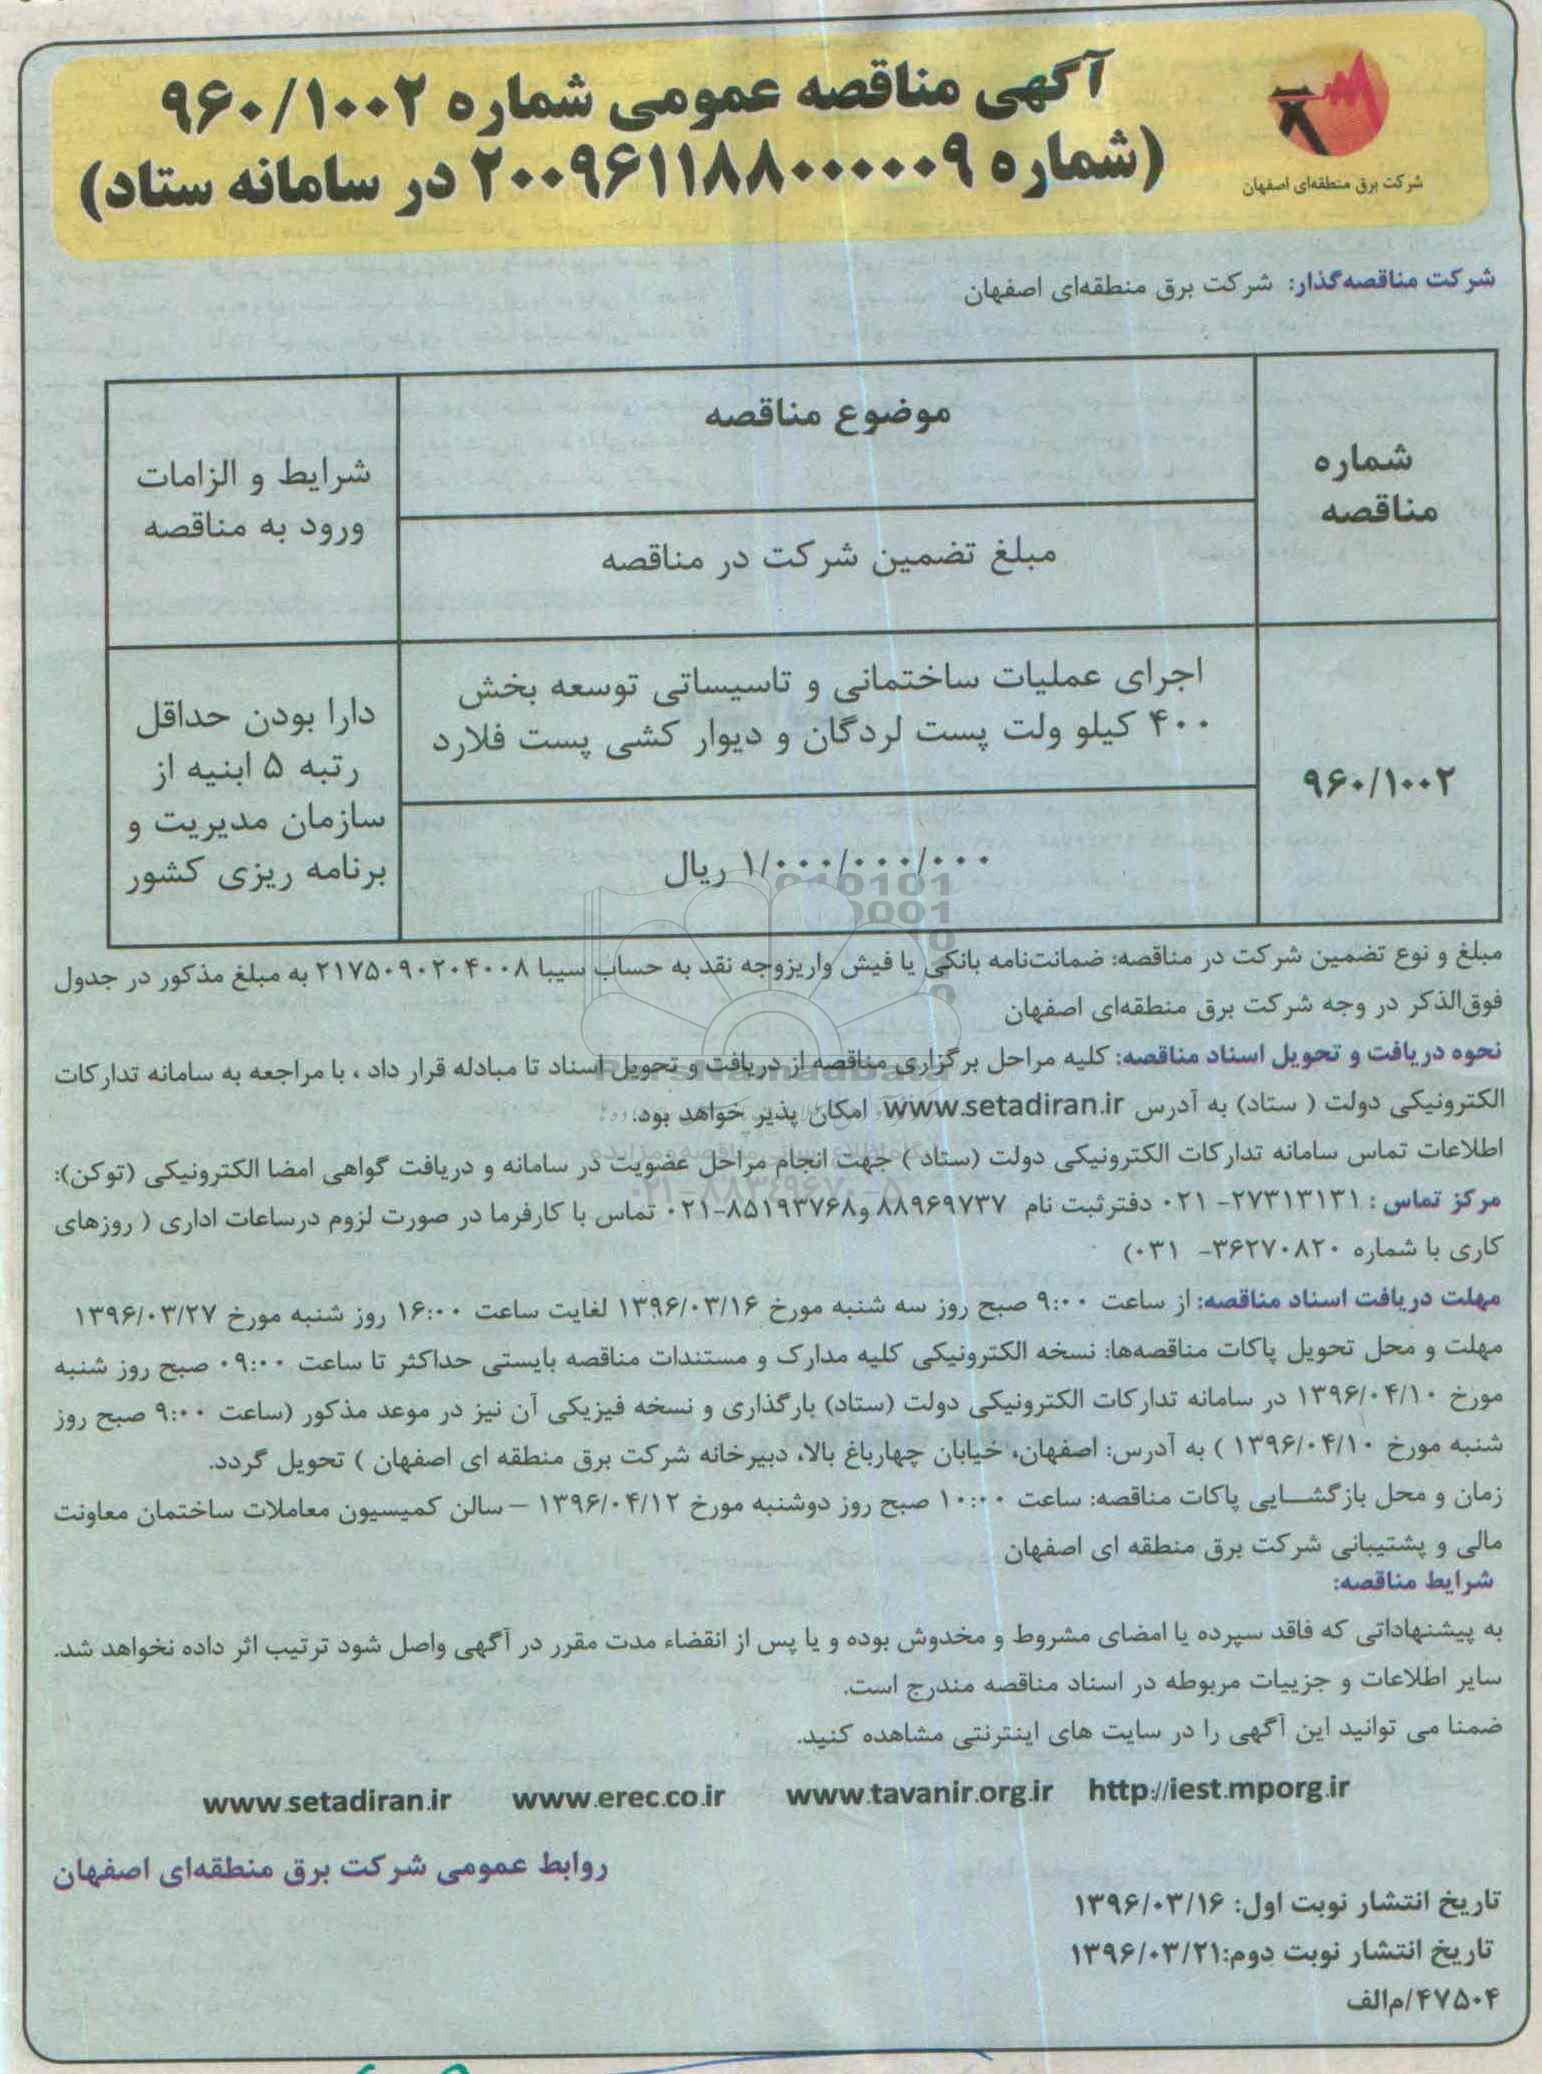 آگهی مناقصه عمومی شماره ۹۶۰/۱۰۰۲
(شماره ۲۰۰۹۶۱۱۸۸۰۰۰۰۰۰۹ در سامانه ستاد)
شرکت برق منطقه‌ای اصفهان
شرکت مناقصه‌گذار: شرکت برق منطقه‌ای اصفهان
شماره مناقصه
موضوع مناقصه
مبلغ تضمین شرکت در مناقصه
شرایط و الزامات
ورود به مناقصه
۹۶۰/۱۰۰۲
اجرای عملیات ساختمانی و تاسیساتی توسعه بخش
۴۰۰ کیلو ولت پست لردگان و دیوار کشی پست فلارد
۱/۰۰۰/۰۰۰/۰۰۰ ریال
دارا بودن حداقل
رتبه ۵ ابنیه از
سازمان مدیریت و
برنامه ریزی کشور
مبلغ و نوع تضمین شرکت در مناقصه: ضمانت‌نامه بانکی یا فیش واریزوجه نقد به حساب سیبا ۲۱۷۵۰۹۰۲۰۴۰۰۸ به مبلغ مذکور در جدول
فوق‌الذکر در وجه شرکت برق منطقه‌ای اصفهان
نحوه دریافت و تحویل اسناد مناقصه: کلیه مراحل برگزاری مناقصه از دریافت و تحویل اسناد تا مبادله قرار داد ، با مراجعه به سامانه تدارکات
الکترونیکی دولت ( ستاد) به آدرس www.setadiran.ir امکان پذیر خواهد بود.
اطلاعات تماس سامانه تدارکات الکترونیکی دولت (ستاد ) جهت انجام مراحل عضویت در سامانه و دریافت گواهی امضا الکترونیکی (توکن):
مرکز تماس : ۲۷۳۱۳۱۳۱- ۰۲۱ دفترثبت نام ۸۸۹۶۹۷۳۷ و۸۵۱۹۳۷۶۸-۰۲۱ تماس با کارفرما در صورت لزوم درساعات اداری ( روزهای
کاری با شماره ۳۶۲۷۰۸۲۰- ۰۳۱)
مهلت دریافت اسناد مناقصه: از ساعت ۹:۰۰ صبح روز سه شنبه مورخ ۱۳۹۶/۰۳/۱۶ لغایت ساعت ۱۶:۰۰ روز شنبه مورخ ۱۳۹۶/۰۳/۲۷
مهلت و محل تحویل پاکات مناقصه‌ها: نسخه الکترونیکی کلیه مدارک و مستندات مناقصه بایستی حداکثر تا ساعت ۰۹:۰۰ صبح روز شنبه
مورخ ۱۳۹۶/۰۴/۱۰ در سامانه تدارکات الکترونیکی دولت (ستاد) بارگذاری و نسخه فیزیکی آن نیز در موعد مذکور (ساعت ۹:۰۰ صبح روز
شنبه مورخ ۱۳۹۶/۰۴/۱۰ ) به آدرس: اصفهان، خیابان چهارباغ بالا، دبیرخانه شرکت برق منطقه ای اصفهان ) تحویل گردد.
زمان و محل بازگشـــایی پاکات مناقصه: ساعت ۱۰:۰۰ صبح روز دوشنبه مورخ ۱۳۹۶/۰۴/۱۲ – سالن کمیسیون معاملات ساختمان معاونت
مالی و پشتیبانی شرکت برق منطقه ای اصفهان
شرایط مناقصه:
به پیشنهاداتی که فاقد سپرده یا امضای مشروط و مخدوش بوده و یا پس از انقضاء مدت مقرر در آگهی واصل شود ترتیب اثر داده نخواهد شد.
سایر اطلاعات و جزییات مربوطه در اسناد مناقصه مندرج است.
ضمنا می توانید این آگهی را در سایت های اینترنتی مشاهده کنید.
www.setadiran.ir www.erec.co.ir www.tavanir.org.ir http://iest.mporg.ir
روابط عمومی شرکت برق منطقه‌ای اصفهان
تاریخ انتشار نوبت اول: ۱۳۹۶/۰۳/۱۶
تاریخ انتشار نوبت دوم:۱۳۹۶/۰۳/۲۱
۴۷۵۰۴/م‌الف
ParsNamadData